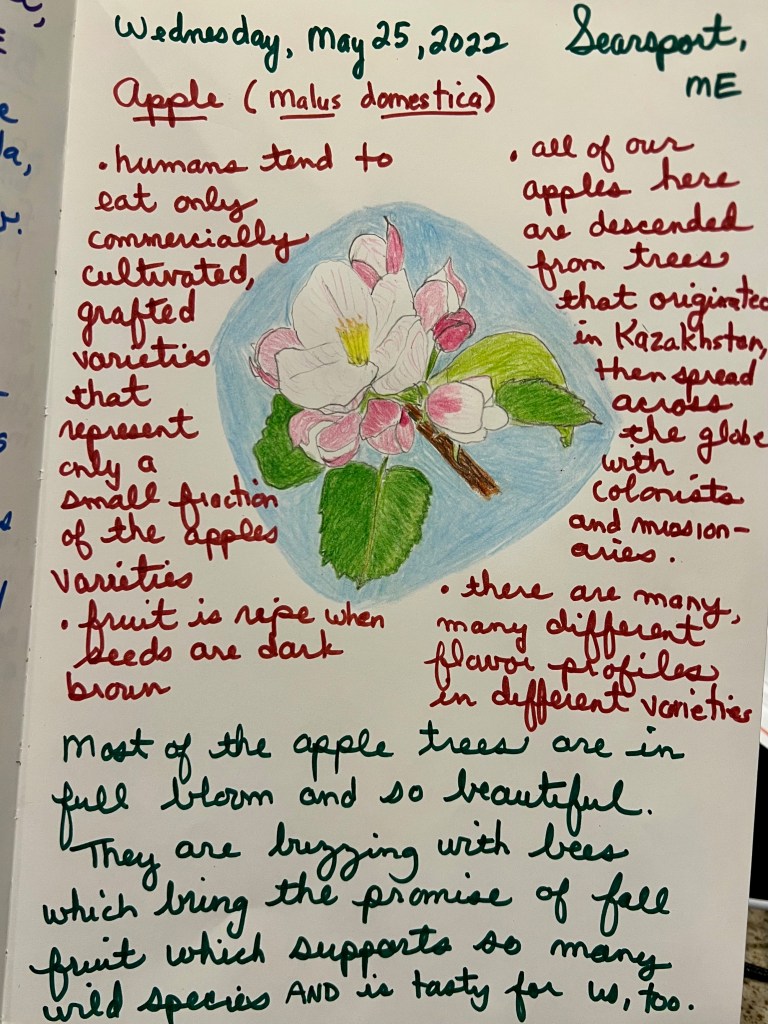 Wednesday, May 25, 2022
Searsport,
ME
Apple (Malus domestica)
• humans tend to
eat only
commercially
cultivated,
grafted
varieties
that
represent
only a
small fraction
of the apples
varieties
• fruit is ripe when
seeds are dark
brown
• all of our
apples here
are descended
from trees
that originated
in Kazakhstan,
then spread
across
the globe
with
colonists
and mission-
aries.
• there are many,
many different
flavor profiles
in different varieties
Most of the apple trees are in
full bloom and so beautiful.
They are buzzing with bees
which bring the promise of fall
fruit which supports so many
wild species AND is tasty for us, too.